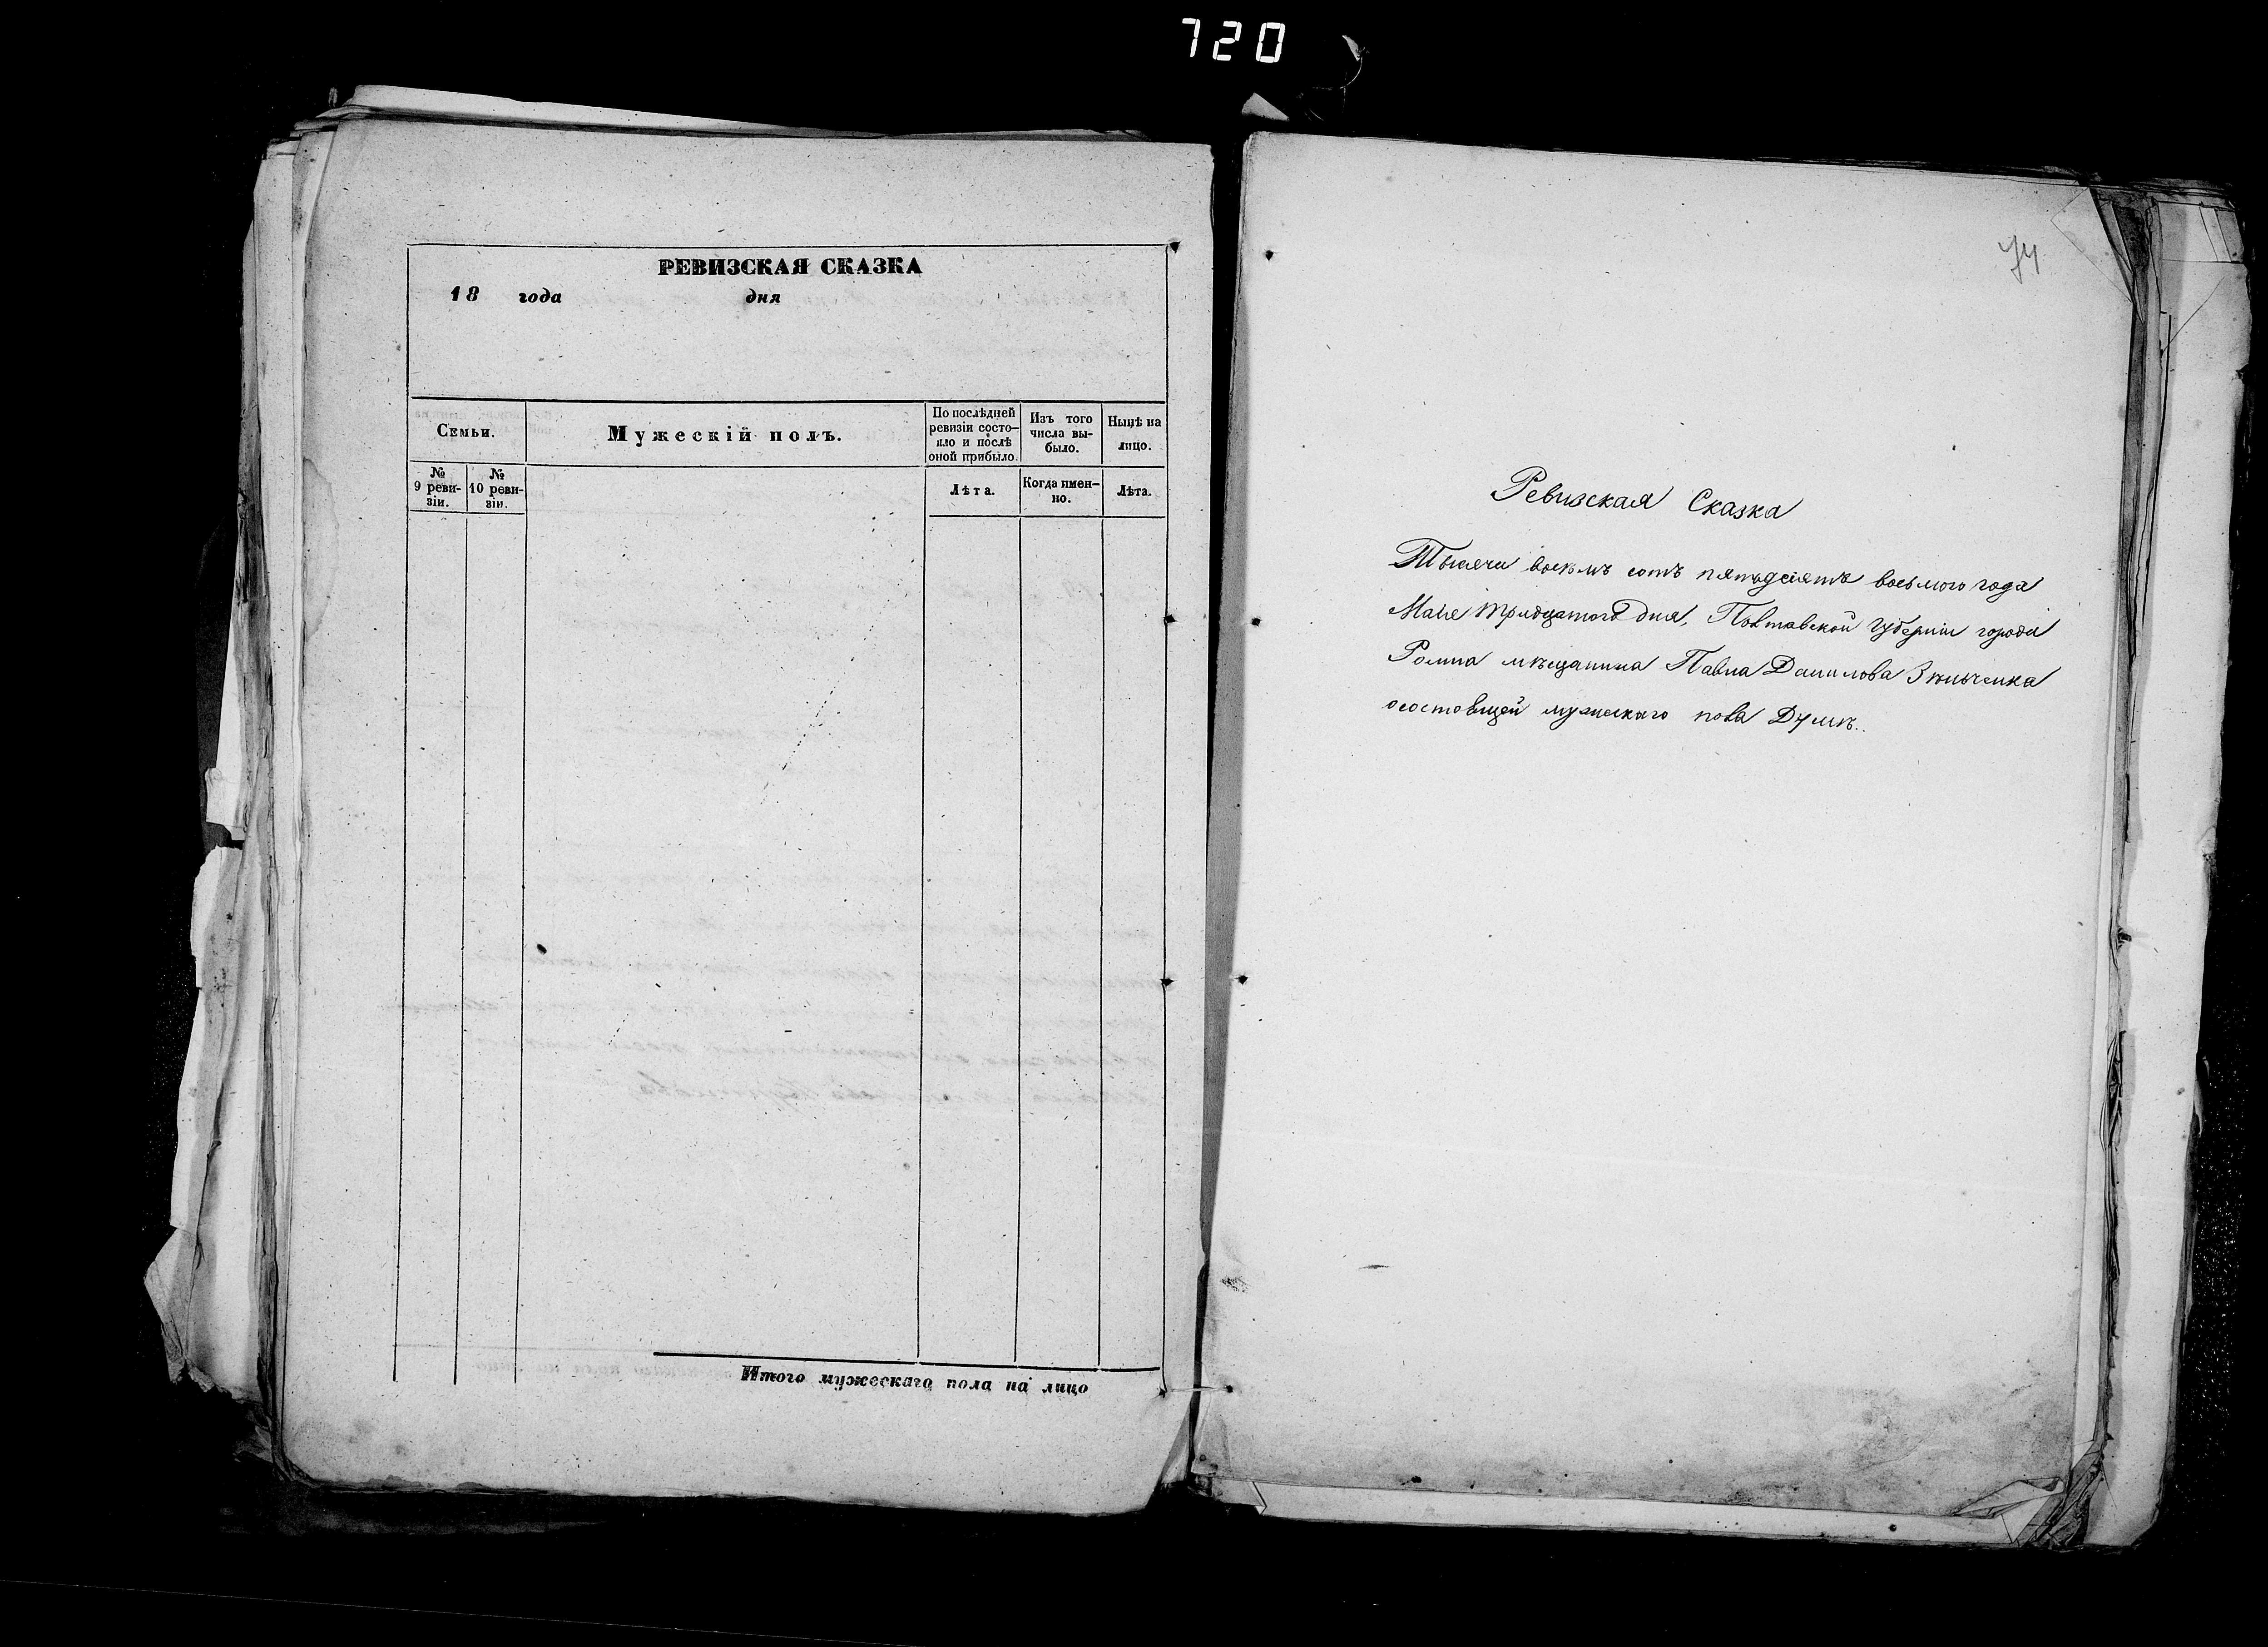 720
РЕВИЗСКАЯ СКАЗКА
18 года дня
Семьи.
Мужескій полъ.
По послѣдней ревизіи состо-
яло и послѣ оной прибыло.
Изъ того числа вы-
было.
Нынѣ на лицо.
№ 9 реви-
зіи.
№ 10 реви-
зіи.
Лѣта.
Когда имен-
но.
Лѣта.
Итого мужескаго пола на лицо
74
Ревизская Сказка
Тысяча восемъ сотъ пятьдесятъ восьмого года
Мая тридцатого дня, Полтавской Губерніи города
Ромна мѣщанина Павла Данилова Зѣньченка
осостоящей мужескаго пола Душѣ..